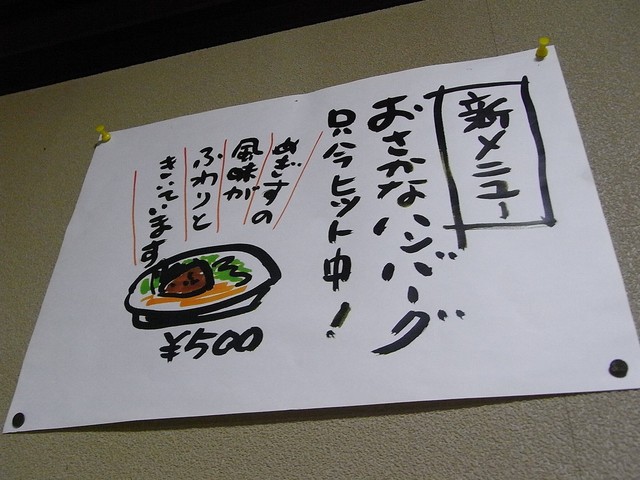 新メニュー
おさかなハンバーグ
只今ヒット中!
めぎすの
風味が
ふわりと
きいています
¥500